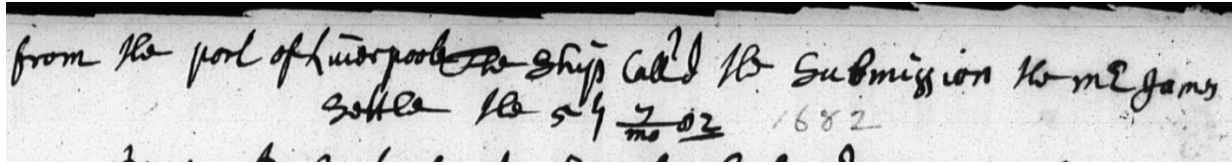 from the port of Liverpoole the Ship Call'd the Submission the mr James
Settle the 5th 7/mo 82 1682